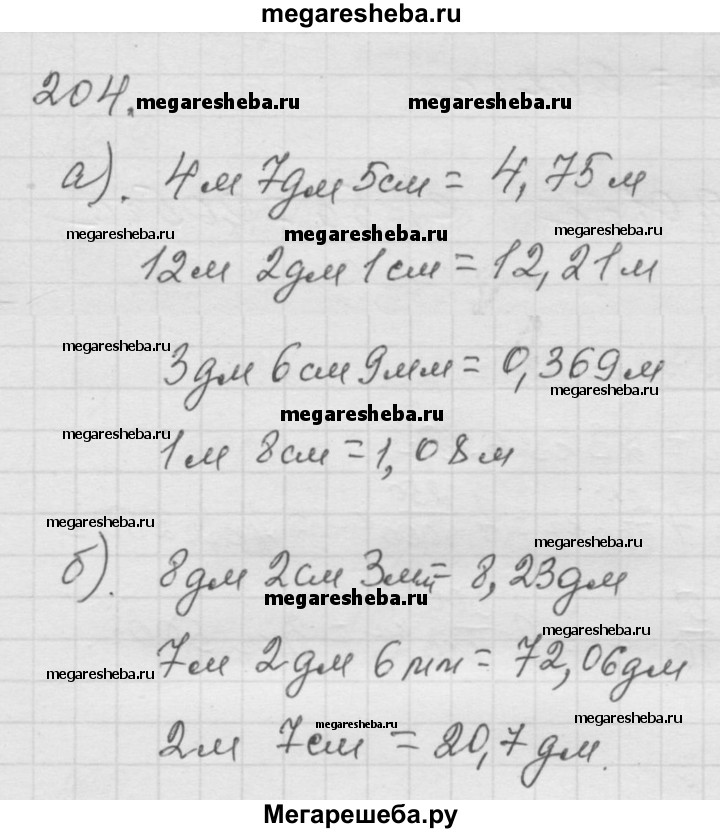 megaresheba.ru
204.
megaresheba.ru megaresheba.ru
а). 4м 7дм 5см = 4,75м
megaresheba.ru megaresheba.ru megaresheba.ru
12м 2дм 1см = 12,21м
megaresheba.ru
3дм 6см 9мм = 0,369м
megaresheba.ru
megaresheba.ru
megaresheba.ru
1м 8см = 1,08м
megaresheba.ru
megaresheba.ru
б). 8дм 2см 3мм = 8,23дм
megaresheba.ru
megaresheba.ru
7м 2дм 6мм = 72,06дм
megaresheba.ru
megaresheba.ru
megaresheba.ru
2м 7см = 20,7дм.
Мегарешеба.ру